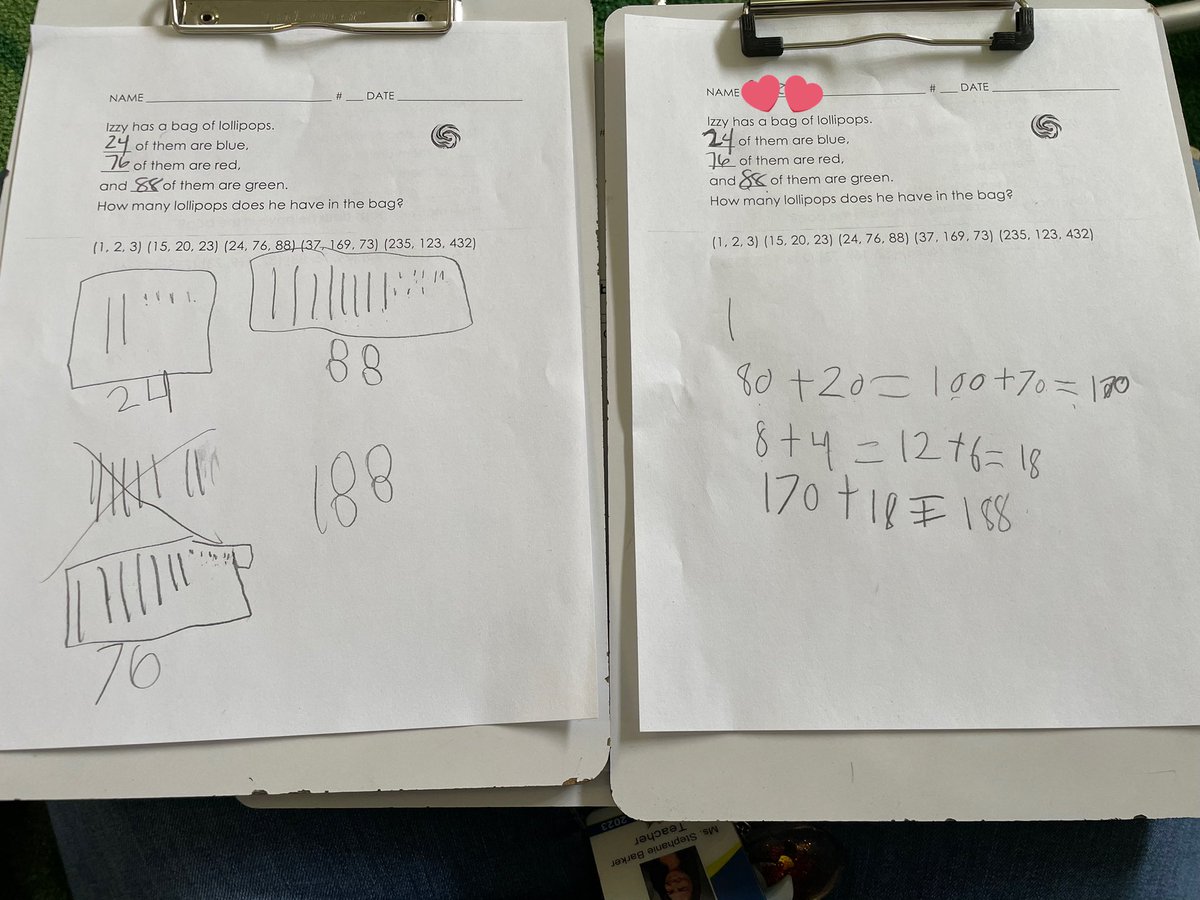 NAME # DATE
Izzy has a bag of lollipops.
24 of them are blue,
76 of them are red,
and 88 of them are green.
How many lollipops does he have in the bag?
(1, 2, 3) (15, 20, 23) (24, 76, 88) (37, 169, 73) (235, 123, 432)
24
88
188
76
NAME # DATE
Izzy has a bag of lollipops.
24 of them are blue,
76 of them are red,
and 88 of them are green.
How many lollipops does he have in the bag?
(1, 2, 3) (15, 20, 23) (24, 76, 88) (37, 169, 73) (235, 123, 432)
80 + 20 = 100 + 70 = 170
8 + 4 = 12 + 6 = 18
170 + 18 = 188
2023
Teacher
Ms. Stephanie Barker